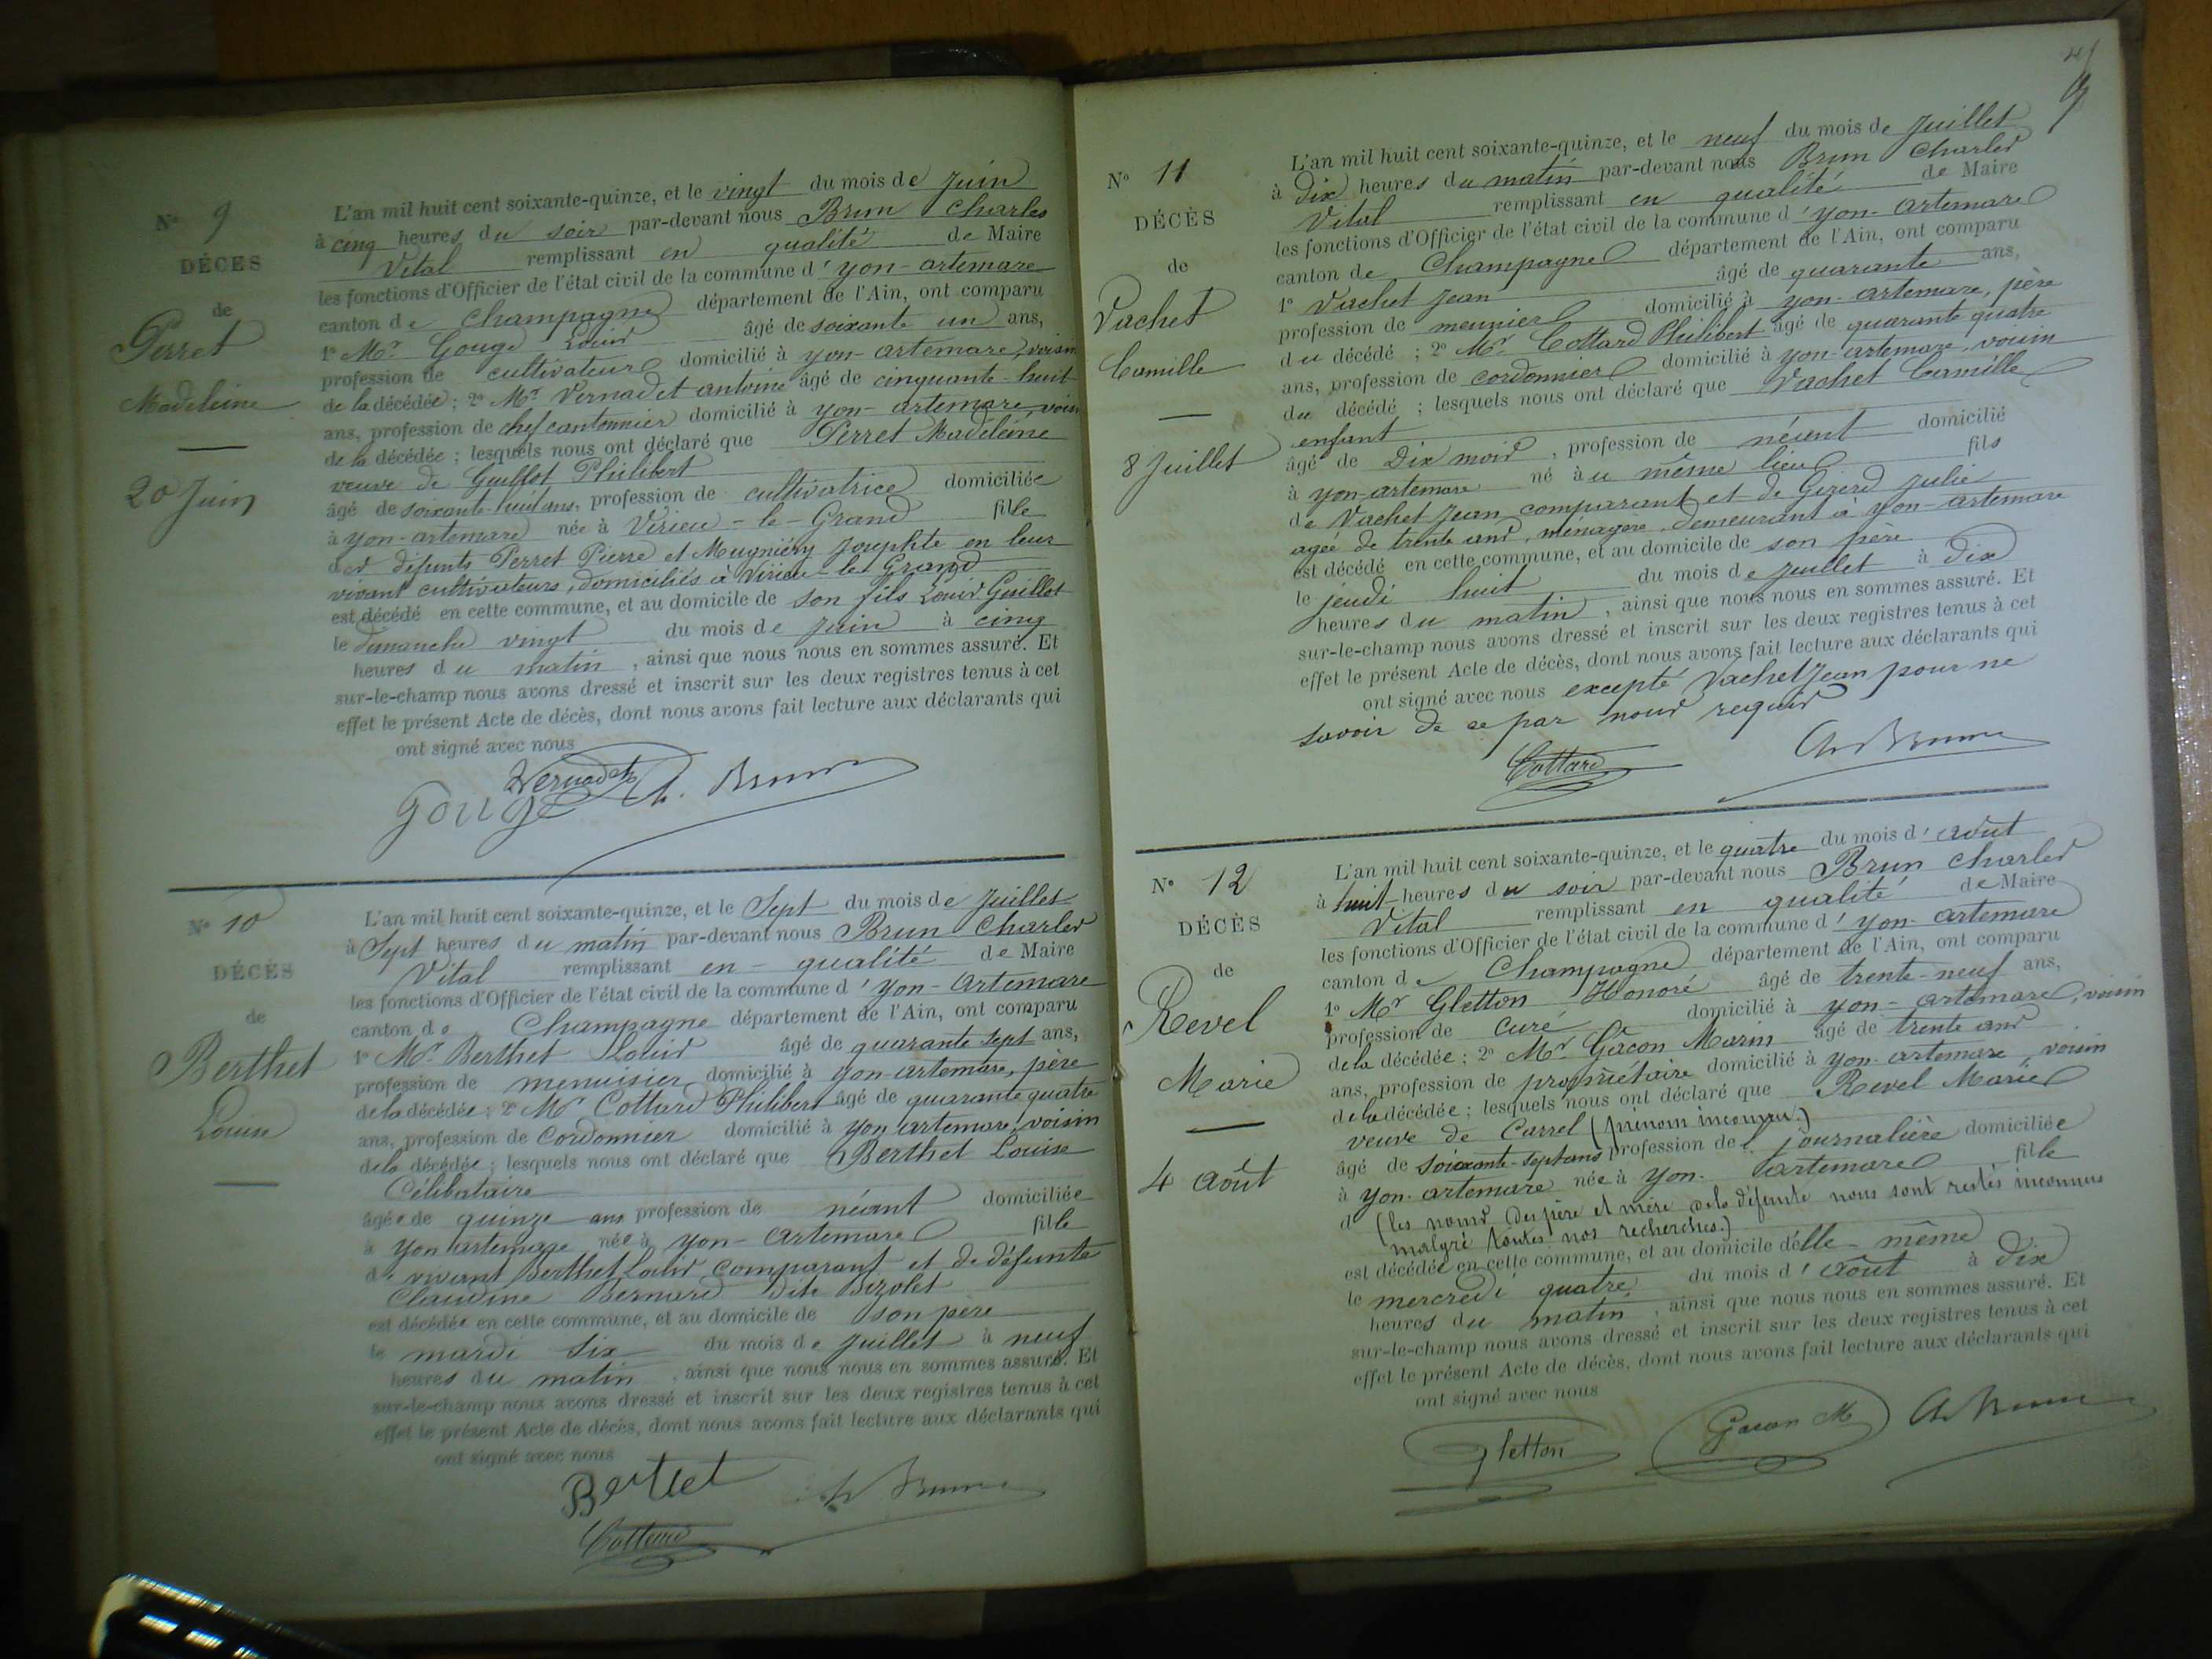 N° 9
DÉCÈS
de
Perret
Madeleine
20 Juin
L'an mil huit cent soixante-quinze, et le vingt du mois de Juin
à cinq heures du soir par-devant nous Brun Charles
Vital remplissant en qualité de Maire
les fonctions d'Officier de l'état civil de la commune d'yon-artemare
canton de Champagne département de l'Ain, ont comparu
1° Mr Gouge Louis âgé de soixante un ans,
profession de cultivateur domicilié à yon-artemare, voisin
de la décédée ; 2° Mr Vernadet antoine âgé de cinquante-huit
ans, profession de chef cantonnier domicilié à yon-artemare, voisin
de la décédée ; lesquels nous ont déclaré que Perret Madeleine
veuve de Guillot Philibert
âgé de soixante-huit ans, profession de cultivatrice domiciliée
à yon-artemare née à Virieu-le-Grand fille
des défunts Perret Pierre et Mugniéry Josephte en leur
vivant cultivateurs, domiciliés à Virieu-le-Grand
est décédé en cette commune, et au domicile de son fils Louis Guillot
le dimanche vingt du mois de Juin à cinq
heures du matin, ainsi que nous nous en sommes assuré. Et
sur-le-champ nous avons dressé et inscrit sur les deux registres tenus à cet
effet le présent Acte de décès, dont nous avons fait lecture aux déclarants qui
ont signé avec nous
Vernadet
Gouge Ch. Brun
N° 10
DÉCÈS
de
Berthet
Louise
L'an mil huit cent soixante-quinze, et le Sept du mois de Juillet
à Sept heures du matin par-devant nous Brun Charles
Vital remplissant en qualité de Maire
les fonctions d'Officier de l'état civil de la commune d'yon-Artemare
canton de Champagne département de l'Ain, ont comparu
1° Mr Berthet Louis âgé de quarante sept ans,
profession de menuisier domicilié à yon-artemare, père
de la décédée ; 2° Mr Cottard Philibert âgé de quarante quatre
ans, profession de Cordonnier domicilié à yon artemare, voisin
de la décédée ; lesquels nous ont déclaré que Berthet Louise
Célibataire
âgée de quinze ans profession de néant domiciliée
à yon artemare née à yon-artemare fille
de vivant Berthet Louis comparant et de défunte
Claudine Bernard dite Bizolet
est décédée en cette commune, et au domicile de son père
le mardi six du mois de Juillet à neuf
heures du matin, ainsi que nous nous en sommes assuré. Et
sur-le-champ nous avons dressé et inscrit sur les deux registres tenus à cet
effet le présent Acte de décès, dont nous avons fait lecture aux déclarants qui
ont signé avec nous
Berthet Ch Brun
Cottard
9
N° 11
DÉCÈS
de
Vachet
Camille
8 Juillet
L'an mil huit cent soixante-quinze, et le neuf du mois de Juillet
à Dix heures du matin par-devant nous Brun Charles
Vital remplissant en qualité de Maire
les fonctions d'Officier de l'état civil de la commune d'yon-artemare
canton de Champagne département de l'Ain, ont comparu
1° Vachet Jean âgé de quarante ans,
profession de meunier domicilié à yon-artemare, père
du décédé ; 2° Mr Cottard Philibert âgé de quarante quatre
ans, profession de cordonnier domicilié à yon-artemare, voisin
du décédé ; lesquels nous ont déclaré que Vachet Camille
enfant
âgé de Dix mois, profession de néant domicilié
à yon-artemare né au même lieu fils
de Vachet Jean, comparant et de Gizerd Julie
agée de trente ans, ménagère, demeurant à yon-artemare
est décédé en cette commune, et au domicile de son père
le jeudi huit du mois de Juillet à dix
heures du matin, ainsi que nous nous en sommes assuré. Et
sur-le-champ nous avons dressé et inscrit sur les deux registres tenus à cet
effet le présent Acte de décès, dont nous avons fait lecture aux déclarants qui
ont signé avec nous excepté Vachet Jean pour ne
savoir de ce par nous requis
Cottard Ch Brun
N° 12
DÉCÈS
de
Revel
Marie
4 août
L'an mil huit cent soixante-quinze, et le quatre du mois d'août
à huit heures du soir par-devant nous Brun Charles
Vital remplissant en qualité de Maire
les fonctions d'Officier de l'état civil de la commune d'yon-artemare
canton de Champagne département de l'Ain, ont comparu
1° Mr Gletton Honoré âgé de trente-neuf ans,
profession de curé domicilié à yon-artemare, voisin
de la décédée ; 2° Mr Gacon Marin âgé de trente ans
ans, profession de propriétaire domicilié à yon-artemare, voisin
de la décédée ; lesquels nous ont déclaré que Revel Marie
veuve de Carrel (prénom inconnu)
âgé de soixante-sept ans profession de journalière domiciliée
à yon-artemare née à yon-artemare fille
d (les noms des père et mère de la défunte nous sont restés inconnus
malgré toutes nos recherches.)
est décédée en cette commune, et au domicile d'elle-même
le mercredi quatre du mois d'août à dix
heures du matin, ainsi que nous nous en sommes assuré. Et
sur-le-champ nous avons dressé et inscrit sur les deux registres tenus à cet
effet le présent Acte de décès, dont nous avons fait lecture aux déclarants qui
ont signé avec nous
Gletton Gacon M Ch Brun